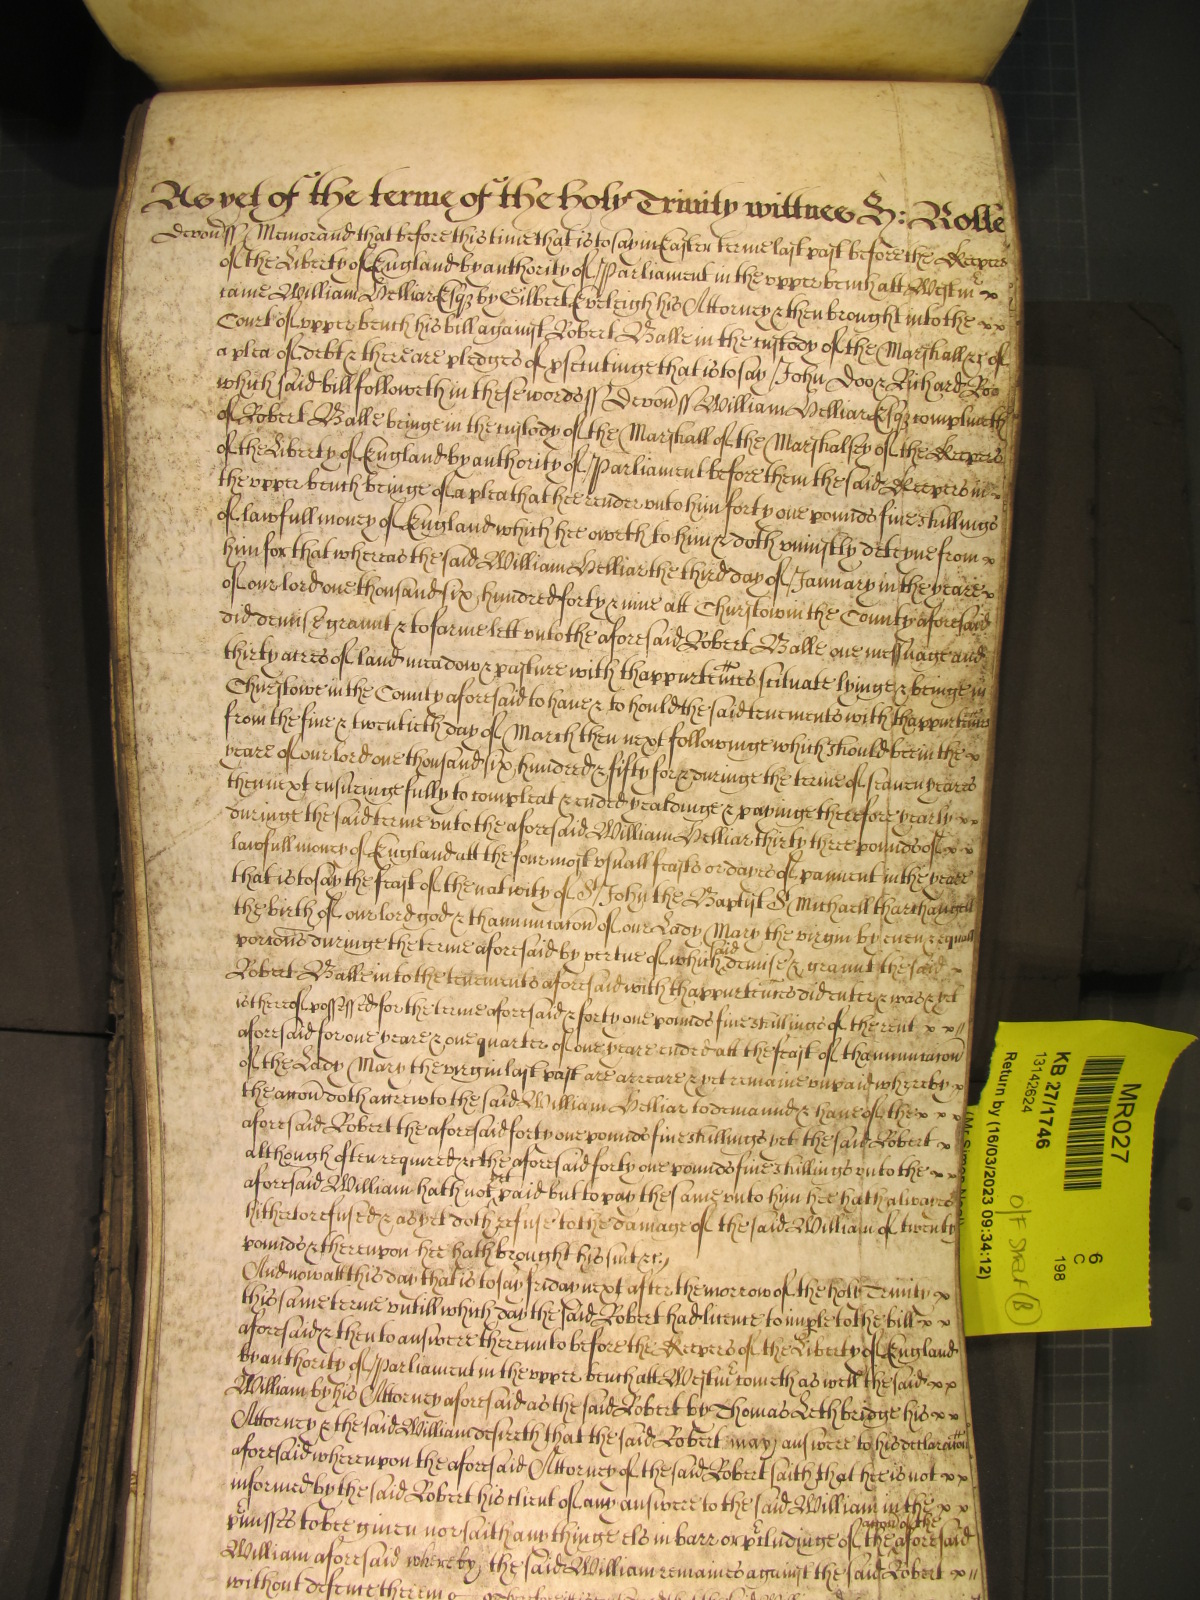 As yet of the terme of the holy Trinity wittnes H: Rolle
Devon ss Memorand that before this time that is to say in Easter terme last past before the Keepers
of the Liberty of England by authority of Parliament in the upper bench att Westm
came William Velliar Esqz by Gilbert Eveleigh his Attorney & then brought into the
Court of upper bench his bill against Robert Balle in the custody of the Marshall &c of
a plea of debt & there are pledges of psecutinge that is to say John Doo & Richard Roo
which said bill followeth in these words ss Devon ss William Velliar Esqz complaineth
of Robert Balle beinge in the custody of the Marshall of the Marshalsey of the Keepers
of the Liberty of England by authority of Parliament before them the said Keepers in
the upper bench beinge of a plea that hee render unto him forty one pounds five shillings
of lawfull money of England which hee oweth to him & doth uniustly deteyne from
him for that whereas the said William Velliar the third day of January in the yeare
of our lord one thousand six hundred forty & nine att Churstow in the County aforesaid
did demise graunt & to farme lett unto the aforesaid Robert Balle one messuage and
thirty acres of land meadow & pasture with thappurtences scituate lyinge & beinge in
Churstowe in the County aforesaid to have & to hould the said tenements with thappurtences
from the five & twentieth day of March then next followinge which should bee in the
yeare of our lord one thousand six hundred & fifty for & duringe the terme of seaven yeares
then next ensuinge fully to compleat & ended yealdinge & payinge therefore yearly
duringe the said terme unto the aforesaid William Velliar thirty three pounds of
lawfull money of England att the four most usuall feasts or dayes of paiment in the yeare
that is to say the feast of the nativity of St John the Baptist St Michaell tharchangell
the birth of our lord god & thanunciacon of our Lady Mary the virgin by even & equall
porcons duringe the terme aforesaid by vertue of which said demise & graunt the said
Robert Balle into the tenements aforesaid with thappurtences did enter & was & yet
is thereof possessed for the terme aforesaid & forty one pounds five shillings of the rent
aforesaid for one yeare & one quarter of one yeare ended att the feast of thanunciacon
of the Lady Mary the virgin last past are arreare & yet remaine unpaid whereby
the accon doth accrew to the said William Velliar to demaund & have of the
aforesaid Robert the aforesaid forty one pounds five shillings yet the said Robert
although often required &c the aforesaid forty one pounds five shillings unto the
aforesaid William hath not yet paid but to pay the same unto him hee hath alwaies
hitherto refused & as yet doth refuse to the damage of the said William of twenty
pounds & thereupon hee hath brought his suit &c
And now att this day that is to say friday next after the morrow of the holy Trinity
this same terme untill which day the said Robert had licence to imple to the bill
aforesaid & then to answere thereunto before the Keepers of the Liberty of England
by authority of Parliament in the upper bench att Westm cometh as well the said
William by his Attorney aforesaid as the said Robert by Thomas Lethbridge his
Attorney & the said William desireth that the said Robert may answere to his declaracon
aforesaid whereupon the aforesaid Attorney of the said Robert saith that hee is not
informed by the said Robert his client of any answere to the said William in the
pmisses to bee given nor saith any thinge els in barr or pcludinge of the accon of the aforesaid
William aforesaid whereby the said William remaines against the said Robert
without defence therein
MR027
KB 27/1746
13142624
Return by (16/03/2023 09:34:12)
6
C
198